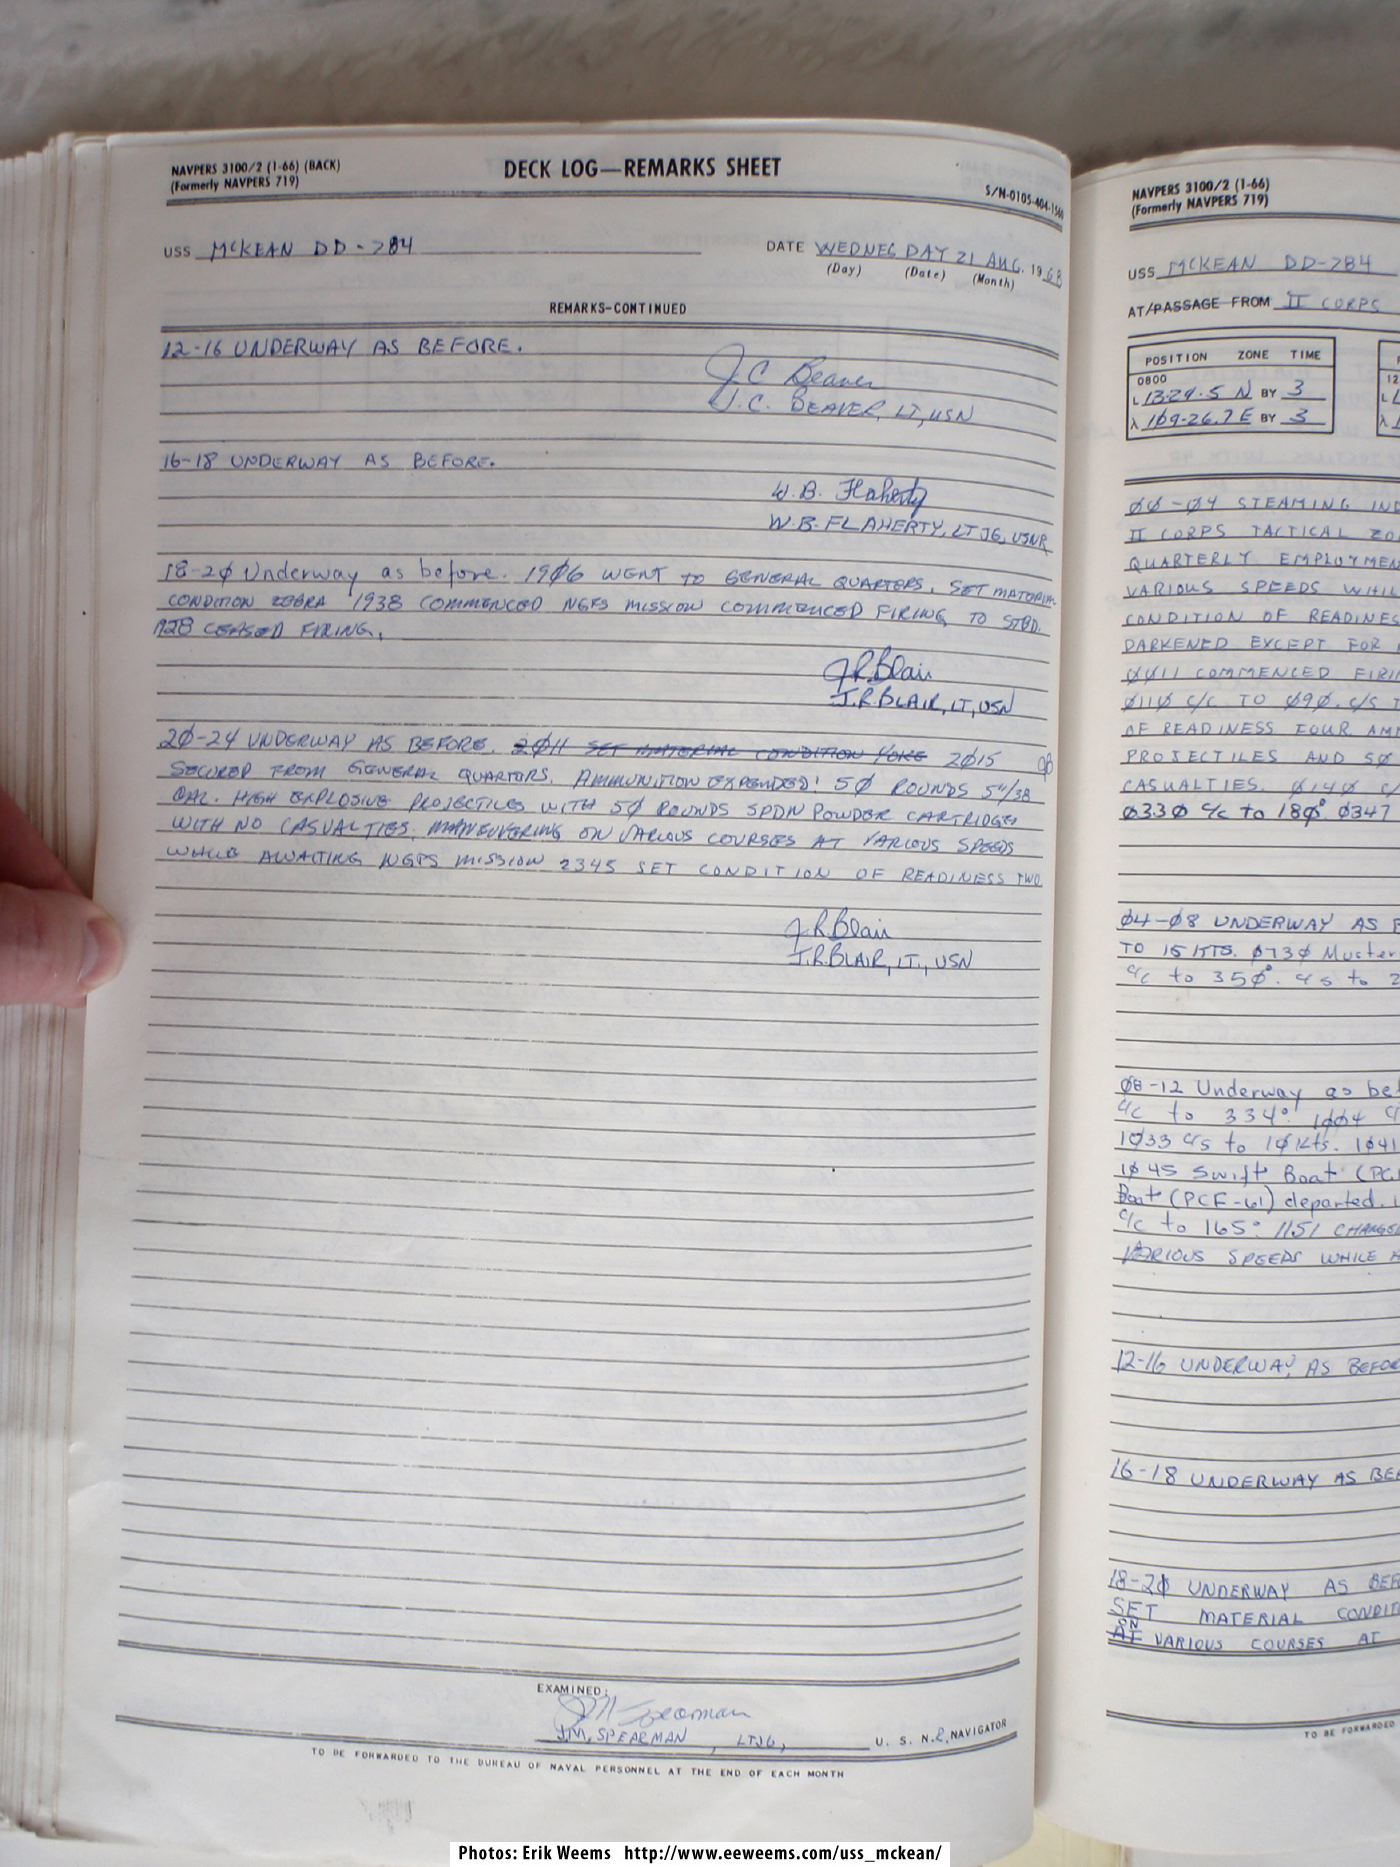 NAVPERS 3100/2 (1-66) (BACK)
(Formerly NAVPERS 719)
DECK LOG—REMARKS SHEET
S/N-0105-404-156
USS MCKEAN DD-784
DATE WEDNESDAY 21 AUG. 1968
(Day) (Date) (Month)
REMARKS-CONTINUED
12-16 UNDERWAY AS BEFORE.
J C Beaver
J.C. BEAVER, LT, USN
16-18 UNDERWAY AS BEFORE.
W.B. Flaherty
W.B. FLAHERTY, LTJG, USNR
18-20 Underway as before. 1906 WENT TO GENERAL QUARTERS. SET MATERIAL
CONDITION ZEBRA 1938 COMMENCED NGFS MISSION COMMENCED FIRING TO STBD.
CEASED FIRING.
J.R. Blair
J.R. BLAIR, LT, USN
20-24 UNDERWAY AS BEFORE. 2011 SET MATERIAL CONDITION YOKE 2015
SECURED FROM GENERAL QUARTERS. AMMUNITION EXPENDED: 50 ROUNDS 5"/38
CAL. HIGH EXPLOSIVE PROJECTILES WITH 50 ROUNDS SPDN POWDER CARTRIDGES
WITH NO CASUALTIES. MANEUVERING ON VARIOUS COURSES AT VARIOUS SPEEDS
WHILE AWAITING NGFS MISSION 2345 SET CONDITION OF READINESS TWO
J.R. Blair
J.R. BLAIR, LT., USN
EXAMINED:
J M Spearman
J.M. SPEARMAN, LTJG, U. S. N.R. NAVIGATOR
TO BE FORWARDED TO THE BUREAU OF NAVAL PERSONNEL AT THE END OF EACH MONTH
NAVPERS 3100/2 (1-66)
(Formerly NAVPERS 719)
USS MCKEAN DD-784
AT/PASSAGE FROM II CORPS
POSITION ZONE TIME
0800
L 13-29.5 N BY 3
λ 109-26.7 E BY 3
12
00-04 STEAMING IND
II CORPS TACTICAL ZO
QUARTERLY EMPLOYMEN
VARIOUS SPEEDS WHIL
CONDITION OF READINES
DARKENED EXCEPT FOR
0011 COMMENCED FIRI
0110 C/C TO 090. C/S T
OF READINESS FOUR AM
PROJECTILES AND 50
CASUALTIES. 0140 C/
0330 C/C to 180° 0347
04-08 UNDERWAY AS B
TO 15 KTS. 0730 Muster
C/C to 350°. C/S to 2
08-12 Underway as be
C/C to 334° 1004 C/
1033 C/S to 10 Kts. 1041
1045 Swift Boat (PC
Boat (PCF-61) departed.
C/C to 165° 1151 CHANGE
VARIOUS SPEEDS WHILE
12-16 UNDERWAY AS BEFO
16-18 UNDERWAY AS BE
18-20 UNDERWAY AS BEF
SET MATERIAL CONDIT
ON
AT VARIOUS COURSES AT
TO BE FORWARDED
Photos: Erik Weems http://www.eeweems.com/uss_mckean/